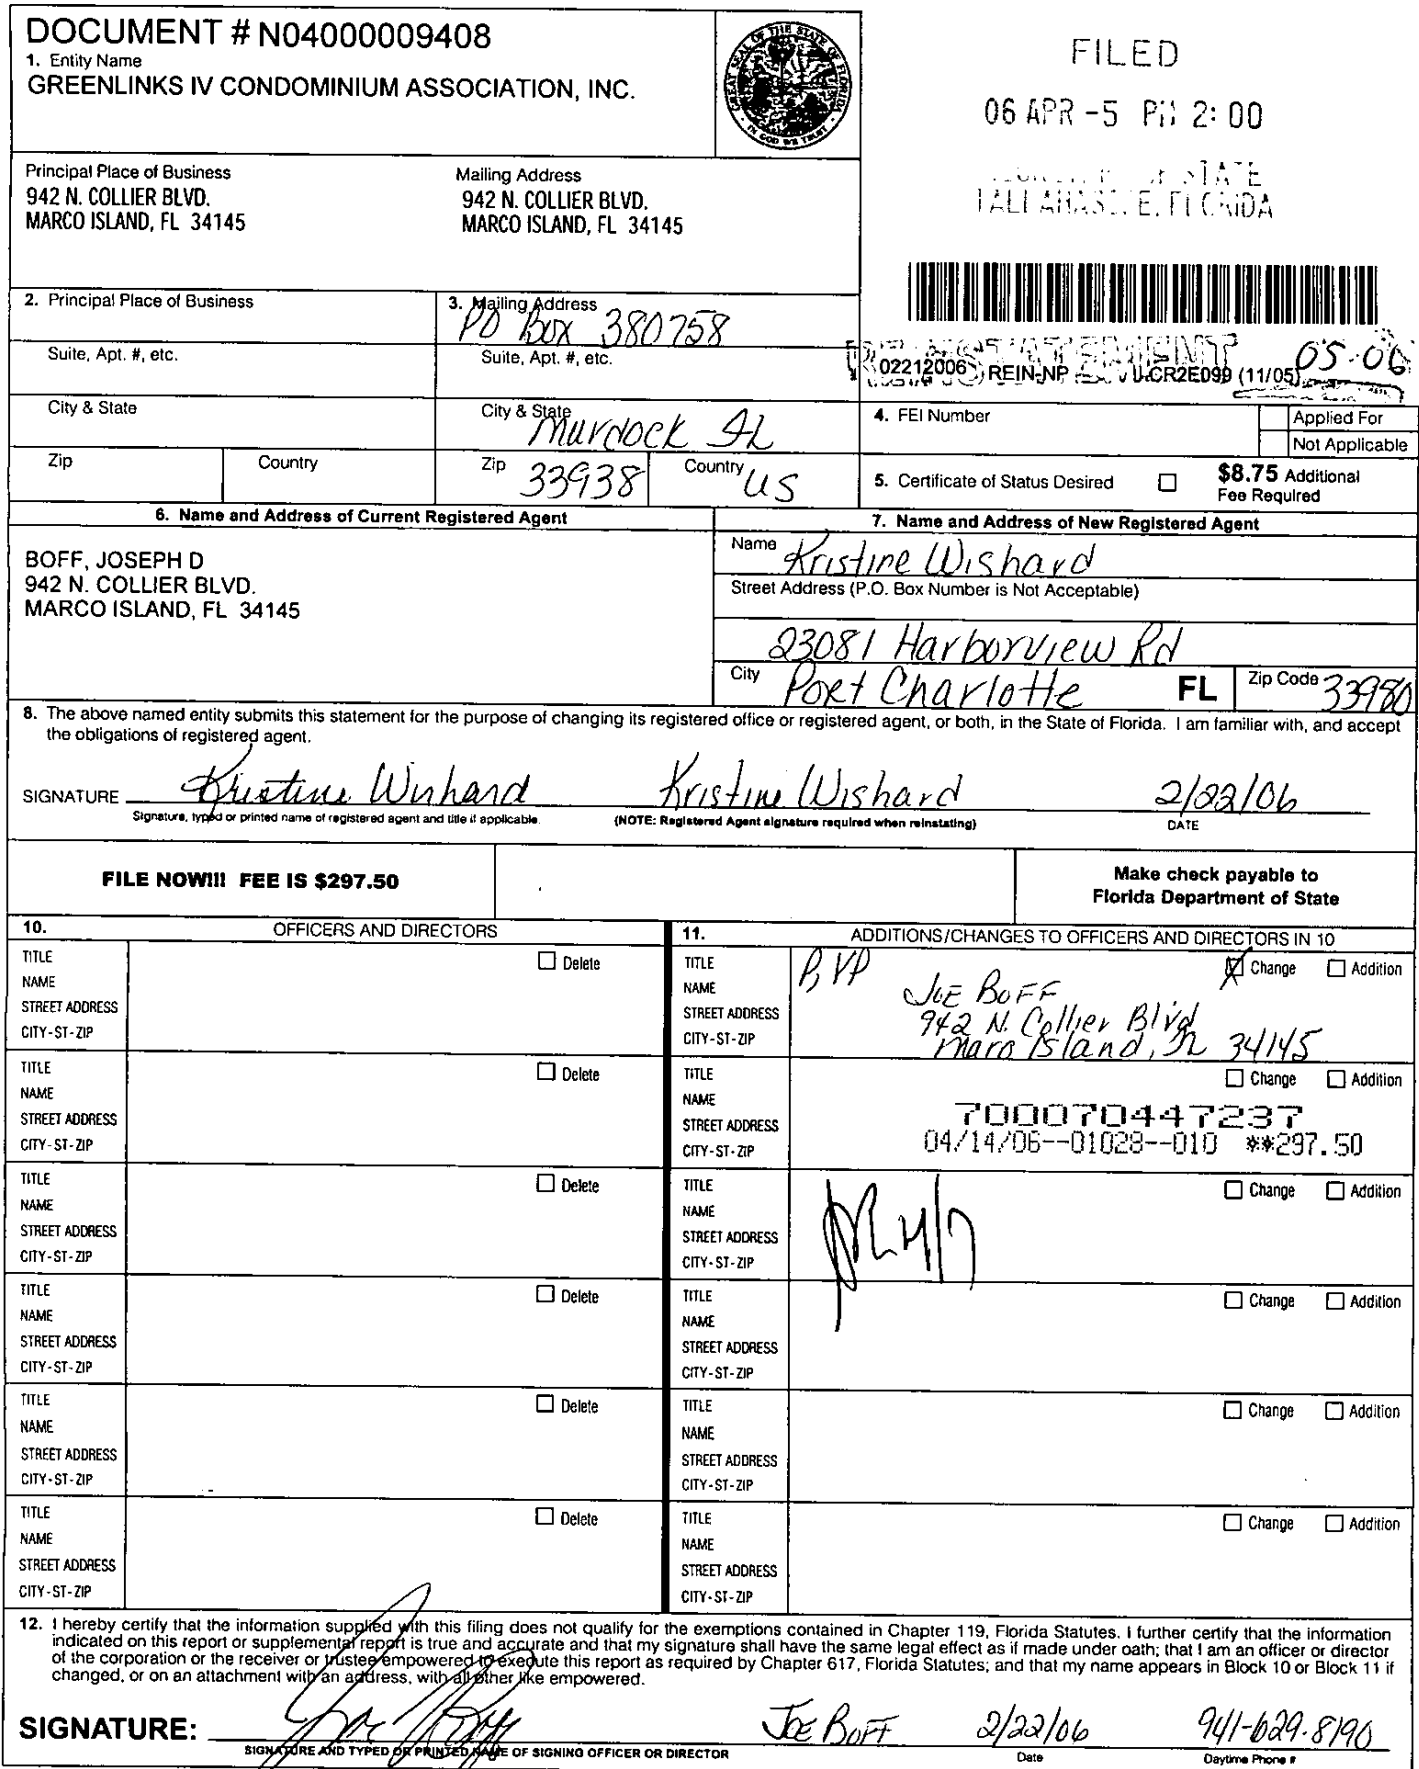 DOCUMENT # N04000009408
1. Entity Name
GREENLINKS IV CONDOMINIUM ASSOCIATION, INC.
GREAT SEAL OF THE STATE OF FLORIDA
IN GOD WE TRUST
FILED
06 APR -5 PM 2:00
OF STATE
TALLAHASSEE, FLORIDA
Principal Place of Business
942 N. COLLIER BLVD.
MARCO ISLAND, FL 34145
Mailing Address
942 N. COLLIER BLVD.
MARCO ISLAND, FL 34145
2. Principal Place of Business
3. Mailing Address
PO Box 380758
Suite, Apt. #, etc.
Suite, Apt. #, etc.
REINSTATEMENT 05-06
02212006 REIN-NP CR2E099 (11/05)
City & State
City & State
Murdock FL
4. FEI Number
Applied For
Not Applicable
Zip
Country
Zip 33938
Country US
5. Certificate of Status Desired
$8.75 Additional
Fee Required
6. Name and Address of Current Registered Agent
BOFF, JOSEPH D
942 N. COLLIER BLVD.
MARCO ISLAND, FL 34145
7. Name and Address of New Registered Agent
Name Kristine Wishard
Street Address (P.O. Box Number is Not Acceptable)
23081 Harborview Rd
City Port Charlotte FL Zip Code 33980
8. The above named entity submits this statement for the purpose of changing its registered office or registered agent, or both, in the State of Florida. I am familiar with, and accept
the obligations of registered agent.
SIGNATURE Kristine Wishard Kristine Wishard 2/22/06
Signature, typed or printed name of registered agent and title if applicable. (NOTE: Registered Agent signature required when reinstating) DATE
FILE NOW!!! FEE IS $297.50
Make check payable to
Florida Department of State
10. OFFICERS AND DIRECTORS
TITLE Delete
NAME
STREET ADDRESS
CITY-ST-ZIP
TITLE Delete
NAME
STREET ADDRESS
CITY-ST-ZIP
TITLE Delete
NAME
STREET ADDRESS
CITY-ST-ZIP
TITLE Delete
NAME
STREET ADDRESS
CITY-ST-ZIP
TITLE Delete
NAME
STREET ADDRESS
CITY-ST-ZIP
TITLE Delete
NAME
STREET ADDRESS
CITY-ST-ZIP
11. ADDITIONS/CHANGES TO OFFICERS AND DIRECTORS IN 10
TITLE P, VP Change Addition
NAME Joe Boff
STREET ADDRESS 942 N. Collier Blvd
CITY-ST-ZIP Maro Island, FL 34145
TITLE Change Addition
NAME 700070447237
STREET ADDRESS 04/14/06--01028--010 **297.50
CITY-ST-ZIP
TITLE Change Addition
NAME
STREET ADDRESS 4/7
CITY-ST-ZIP
TITLE Change Addition
NAME
STREET ADDRESS
CITY-ST-ZIP
TITLE Change Addition
NAME
STREET ADDRESS
CITY-ST-ZIP
TITLE Change Addition
NAME
STREET ADDRESS
CITY-ST-ZIP
12. I hereby certify that the information supplied with this filing does not qualify for the exemptions contained in Chapter 119, Florida Statutes. I further certify that the information
indicated on this report or supplemental report is true and accurate and that my signature shall have the same legal effect as if made under oath; that I am an officer or director
of the corporation or the receiver or trustee empowered to execute this report as required by Chapter 617, Florida Statutes; and that my name appears in Block 10 or Block 11 if
changed, or on an attachment with an address, with all other like empowered.
SIGNATURE: Joe Boff Joe Boff 2/22/06 941-629-8190
SIGNATURE AND TYPED OR PRINTED NAME OF SIGNING OFFICER OR DIRECTOR Date Daytime Phone #